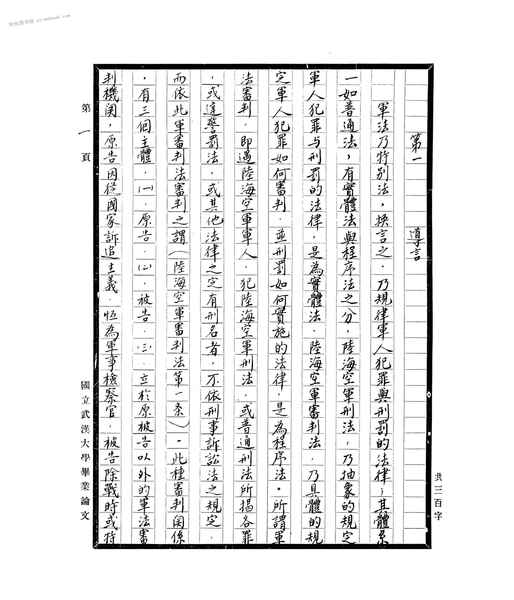 第一 導言
軍法乃特別法，換言之，乃規律軍人犯罪與刑罰的法律；其體系
一如普通法，有實體法與程序法之分，陸海空軍刑法，乃抽象的規定
軍人犯罪与刑罰的法律，是為實體法。陸海空軍審判法，乃具體的規
定軍人犯罪如何審判，並刑罰如何實施的法律，是為程序法。所謂軍
法審判，即遇陸海空軍軍人，犯陸海空軍刑法，或普通刑法所揭各罪
，或違警罰法，或其他法律之定有刑名者，不依刑事訴訟法之規定，
而依此軍審判法審判之謂（陸海空軍審判法第一条）。此種審判関係
，有三個主體，㈠，原告，㈡，被告，㈢，立於原被告以外的軍法審
判機関，原告因從國家訴追主義，恆為軍事檢察官，被告除戰時或特
第一頁
國立武漢大學畢業論文
共三百字